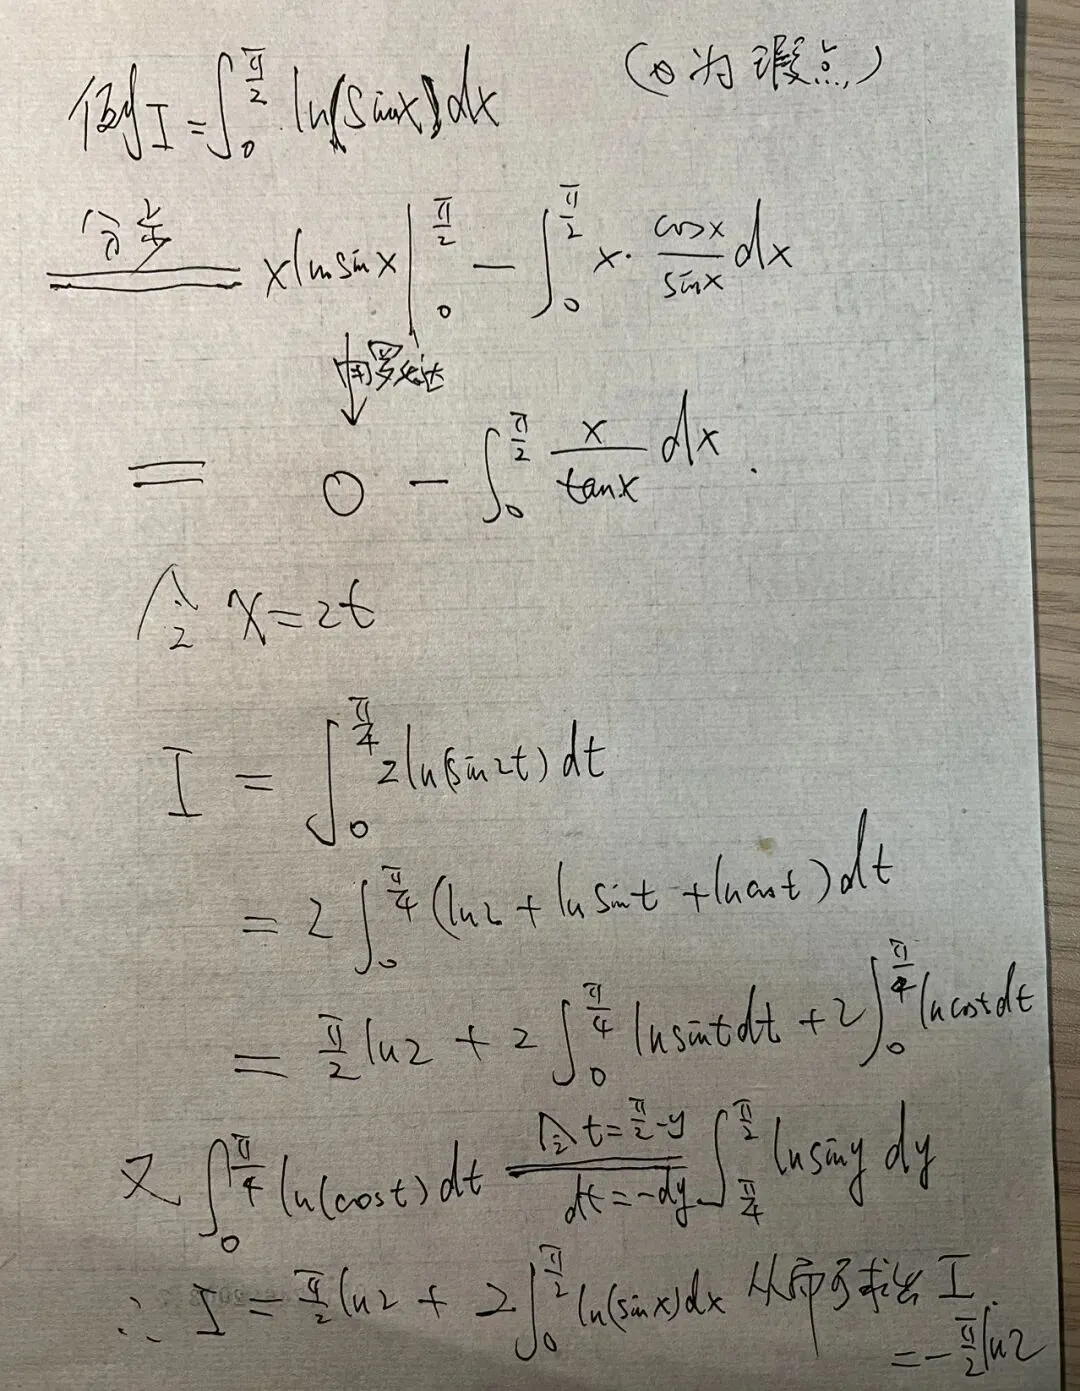 例 I = ∫₀^{π/2} ln(sinx) dx （0为瑕点）
分步 x ln sin x |₀^{π/2} − ∫₀^{π/2} x· cosx/sinx dx
用罗必达
= 0 − ∫₀^{π/2} x/tanx dx.
令 x=2t
I = ∫₀^{π/4} 2 ln(sin2t) dt
= 2 ∫₀^{π/4} (ln2 + ln sint + ln cost) dt
= π/2 ln2 + 2 ∫₀^{π/4} ln sint dt + 2 ∫₀^{π/4} ln cost dt
又 ∫₀^{π/4} ln(cost) dt 令 t=π/2−y dt=−dy ∫_{π/4}^{π/2} ln siny dy
∴ I = π/2 ln2 + 2 ∫₀^{π/2} ln(sinx) dx 从而可求出 I.
= −π/2 ln2